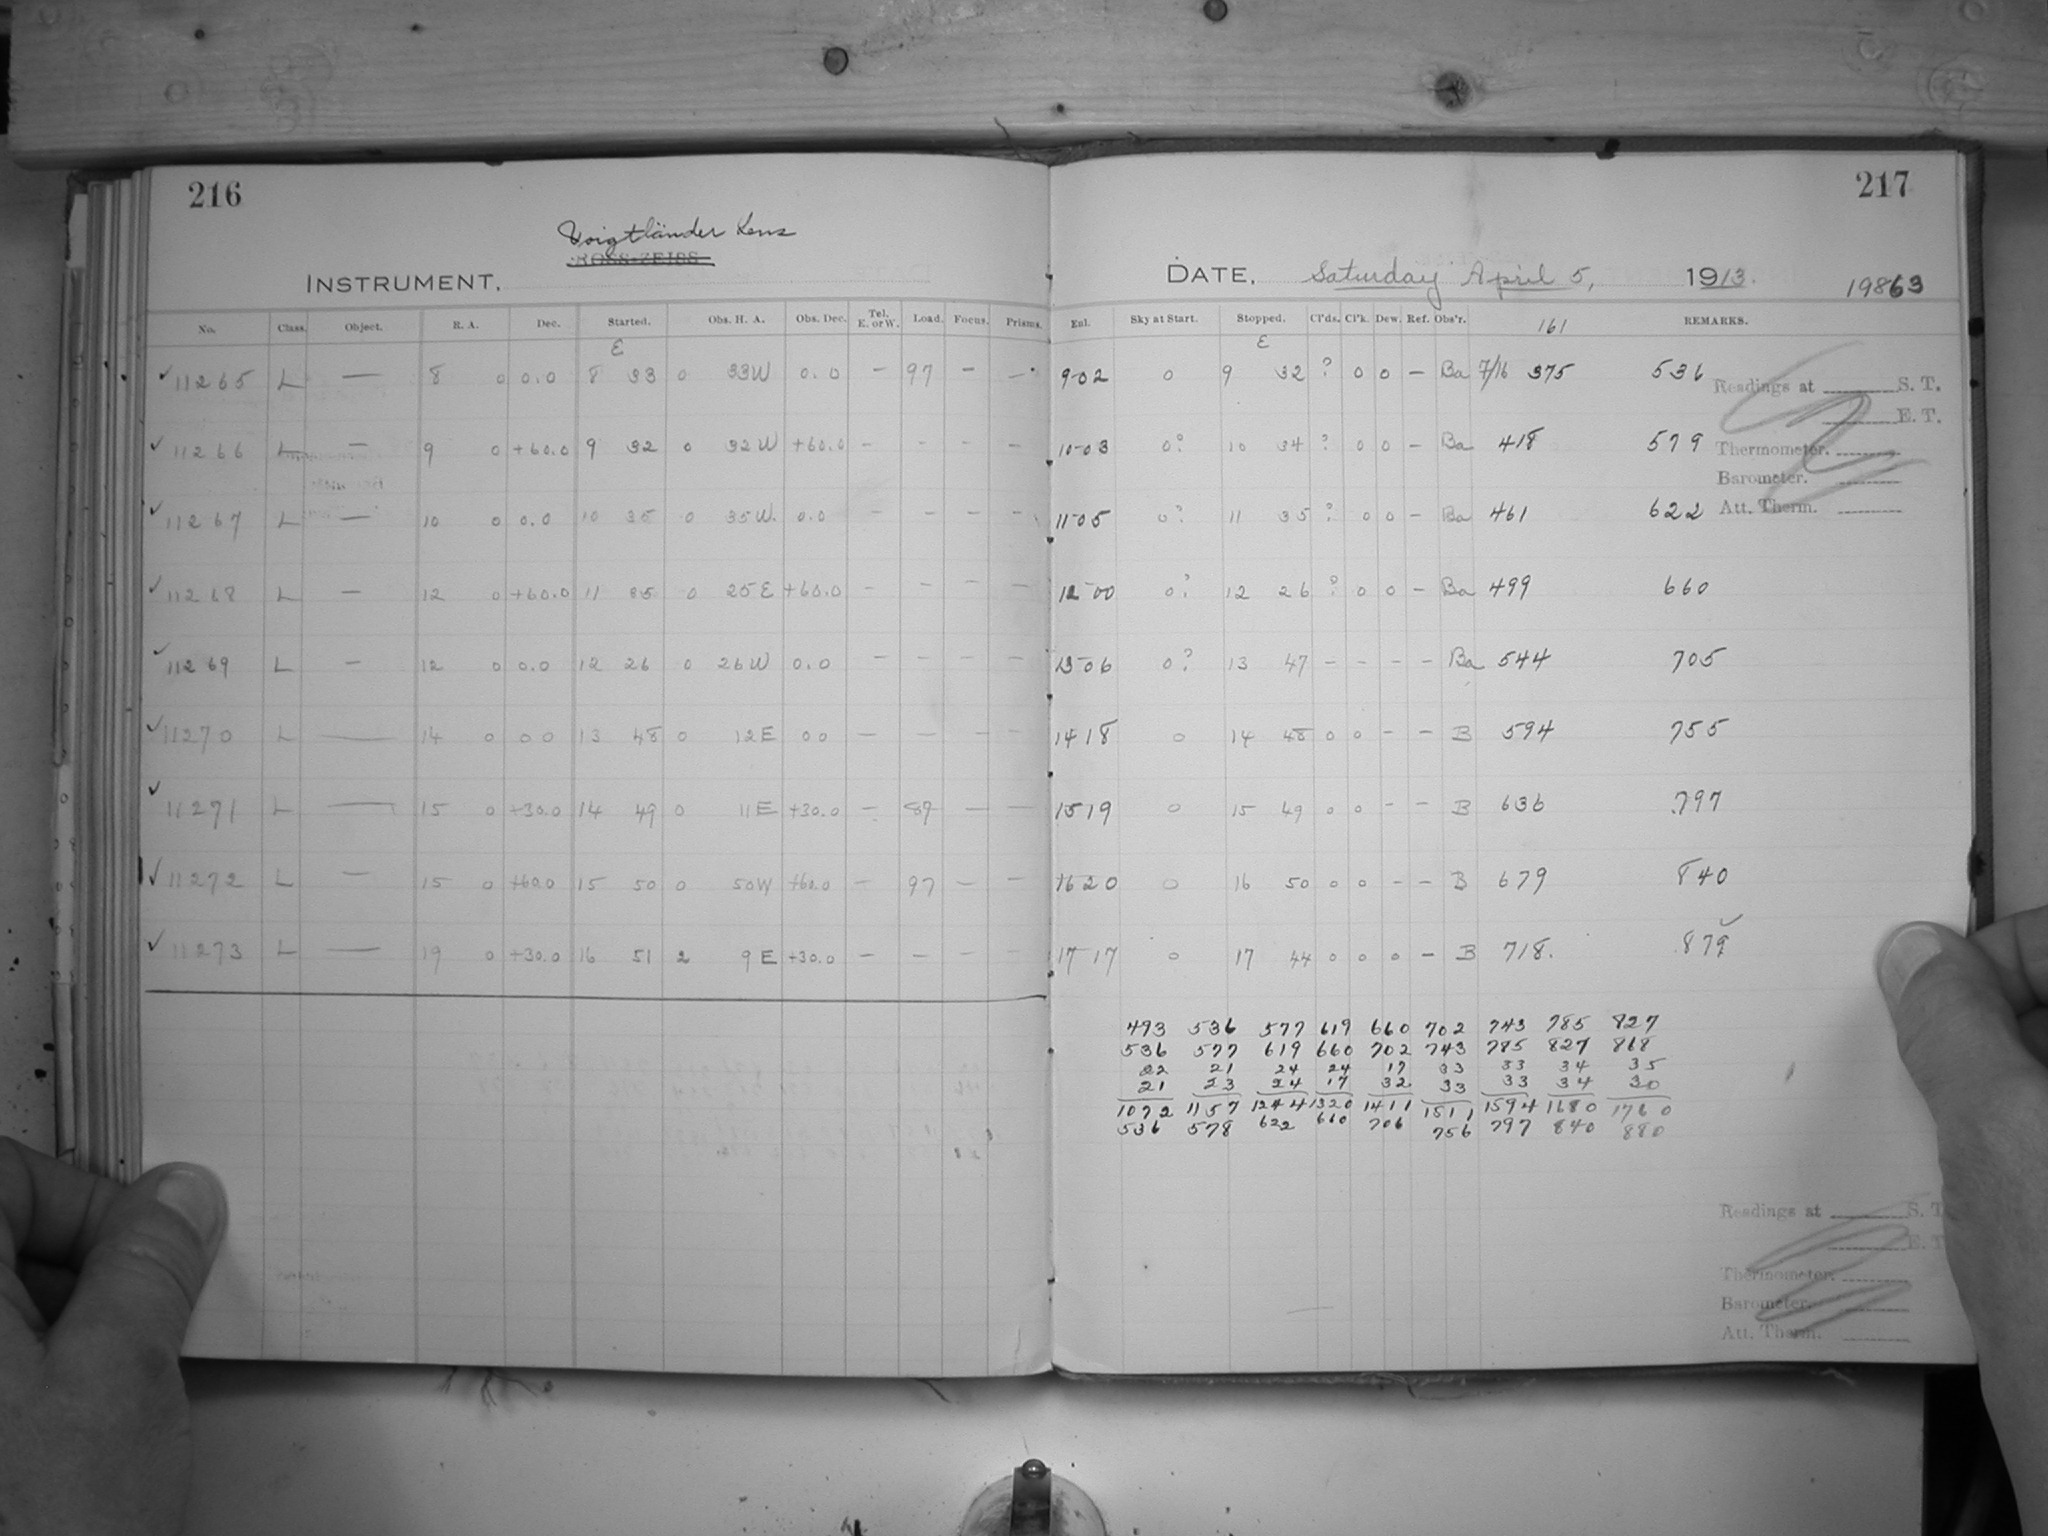 216
Voigtländer Lens
ROSS-ZEISS
INSTRUMENT.
No. Class. Object. R. A. Dec. Started. Obs. H. A. Obs. Dec. Tel. E. or W. Load. Focus. Prisms.
E
✓ 11265 L — 8 0 0.0 8 33 0 33W 0.0 – 97 – –
✓ 11266 L — 9 0 +60.0 9 32 0 32W +60.0 – – – –
✓ 11267 L — 10 0 0.0 10 35 0 35W. 0.0 – – – –
✓ 11268 L — 12 0 +60.0 11 35 0 25E +60.0 – – – –
✓ 11269 L — 12 0 0.0 12 26 0 26W 0.0 – – – –
✓ 11270 L — 14 0 00 13 48 0 12E 00 – – – –
✓ 11271 L — 15 0 +30.0 14 49 0 11E +30.0 – 87 – –
✓ 11272 L — 15 0 +60.0 15 50 0 50W +60.0 – 97 – –
✓ 11273 L — 19 0 +30.0 16 51 2 9E +30.0 – – – –
217
DATE, Saturday April 5, 1913. 19863
Enl. Sky at Start. Stopped. Cl'ds. Cl'k. Dew. Ref. Obs'r. 161 REMARKS.
E
9-02 0 9 32 ? 0 0 – Ba 7/16 375 536
10-03 0? 10 34 ? 0 0 – Ba 418 579
11-05 0? 11 35 ? 0 0 – Ba 461 622
12-00 0? 12 26 ? 0 0 – Ba 499 660
13-06 0? 13 47 – – – – Ba 544 705
14 18 0 14 48 0 0 – – B 594 755
15 19 0 15 49 0 0 – – B 636 797
16 20 0 16 50 0 0 – – B 679 840
17 17 0 17 44 0 0 0 – B 718. 879 ✓
Readings at S. T.
E. T.
Thermometer.
Barometer.
Att. Therm.
493 536 577 619 660 702 743 785 827
536 577 619 660 702 743 785 827 868
22 21 24 24 17 33 33 34 35
21 23 24 17 32 33 33 34 30
1072 1157 1244 1320 1411 1511 1594 1680 1760
536 578 622 660 706 756 797 840 880
Readings at S. T.
E. T.
Thermometer.
Barometer.
Att. Therm.